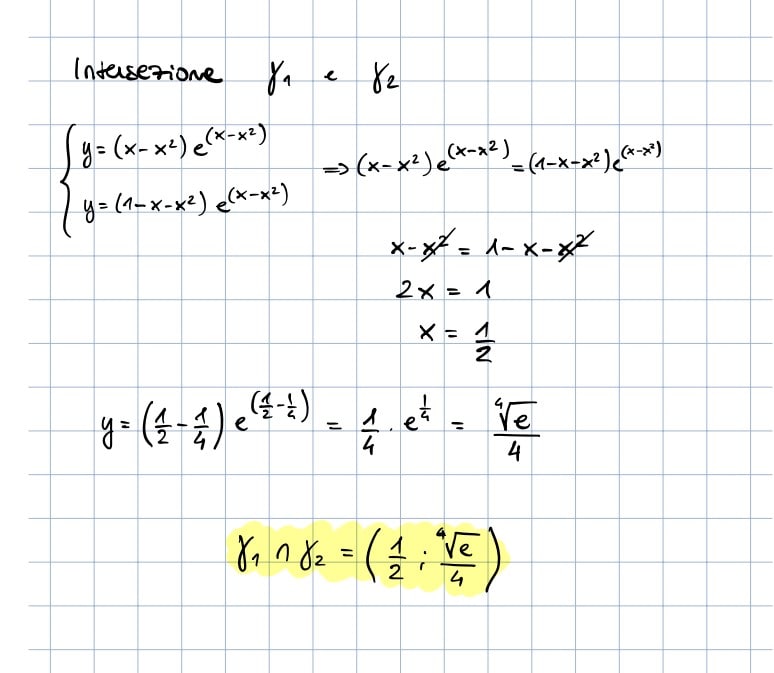 Intersezione γ₁ e γ₂
{ y = (x-x²) e^(x-x²)
y = (1-x-x²) e^(x-x²)
⇒ (x-x²) e^(x-x²) = (1-x-x²) e^(x-x²)
x - x² = 1 - x - x²
2x = 1
x = 1/2
y = (1/2 - 1/4) e^(1/2 - 1/4) = 1/4 · e^(1/4) = ⁴√e/4
γ₁ ∩ γ₂ = (1/2 ; ⁴√e/4)